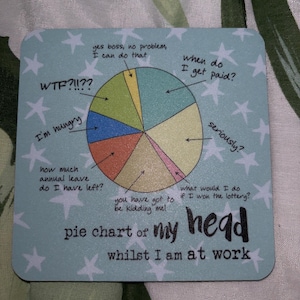 yes boss, no problem,
I can do that
when do
I get paid?
WTF?!!??
I'm hungry
seriously?
how much
annual leave
do I have left?
what would I do
if I won the lottery?
you have got to
be kidding me!
pie chart of my head
whilst I am at work